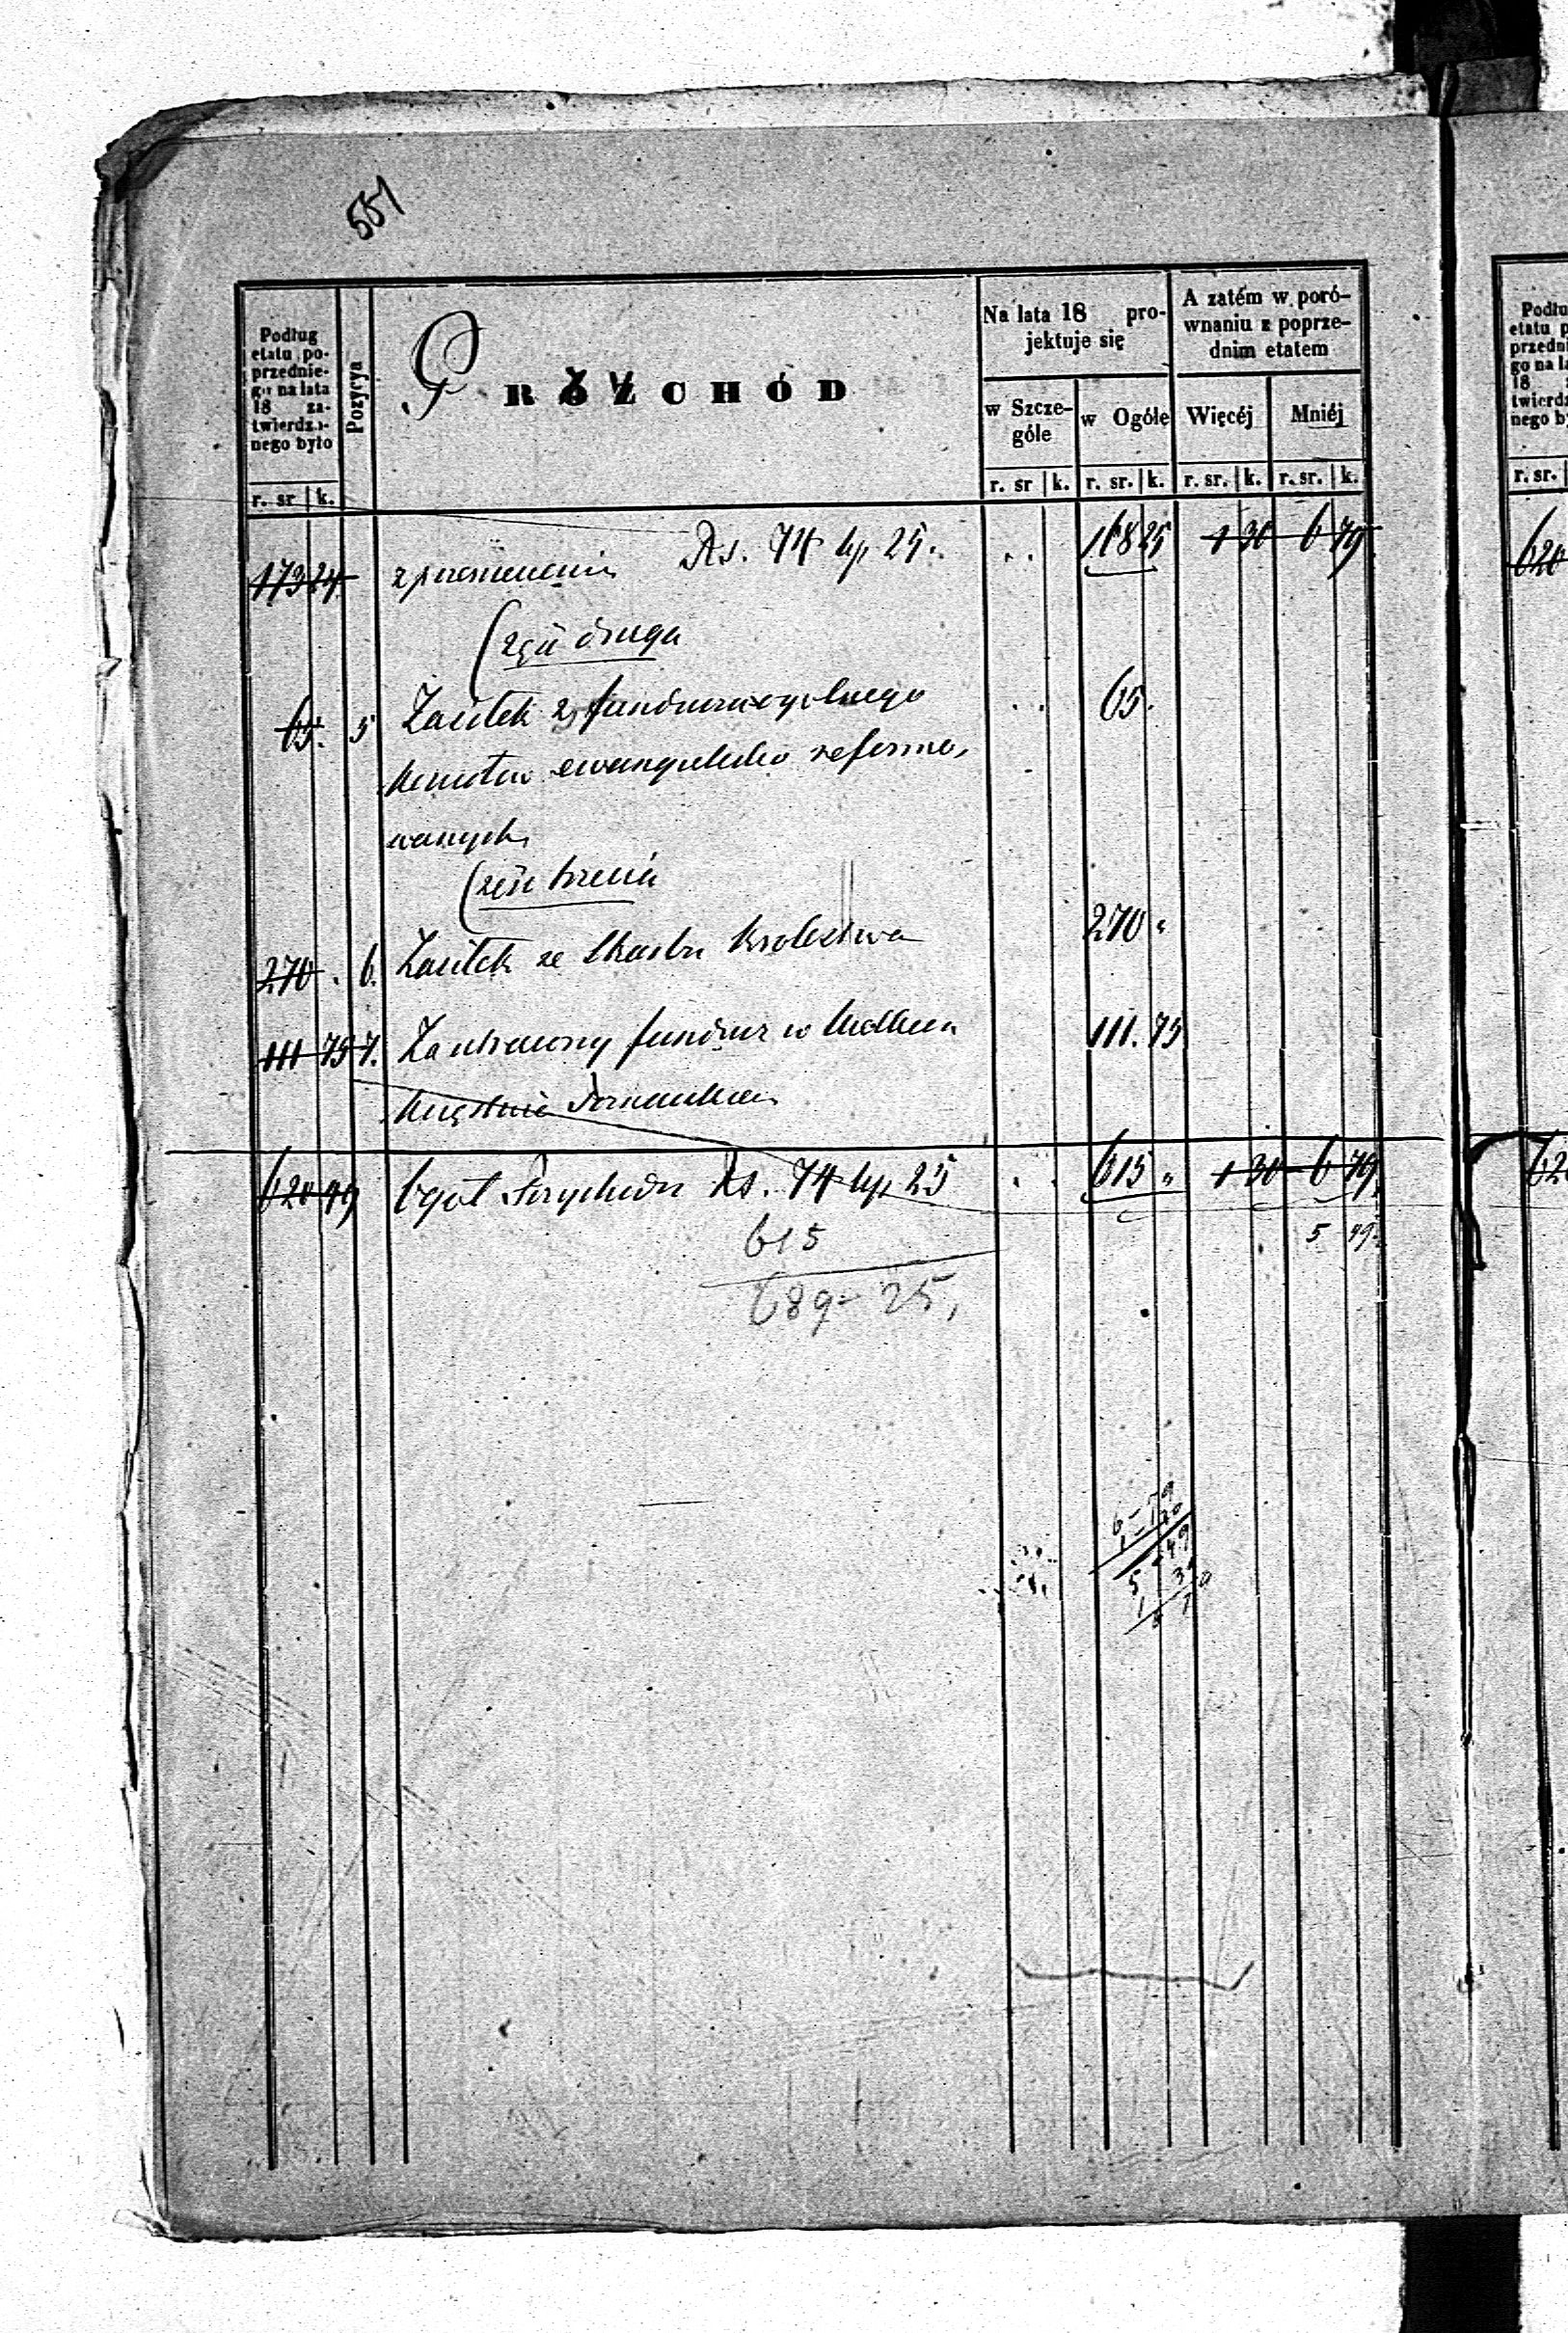 551
Podług etatu poprzedniego na lata 18 zatwierdzonego było
Pozycya
P ROZCHÓD
Na lata 18 projektuje się
A zatém w porównaniu z poprzednim etatem
w Szczególe
w Ogóle
Więcéj
Mniéj
r. sr k.
r. sr k.
r. sr. k.
r. sr. k.
r. sr. k.
173 24 z przeniesienia Rs. 74 kp 25. 168 25 1 30 6 79
Część druga
65. 5 Zasiłek z funduszu ogólnego 65.
ewangelicko reformo,
wanych
Część trzecia
270 . 6. Zasiłek ze Skarbu Królestwa 270 "
111 75 7. fundusz w 111. 75
620 99 Ogół Przychodu Rs. 74 kp 25 615 " 1 30 6 79
615 5 49
689 - 25,
6 - 79
5 49
Podług etatu poprzedniego na lata 18
r. sr.
620